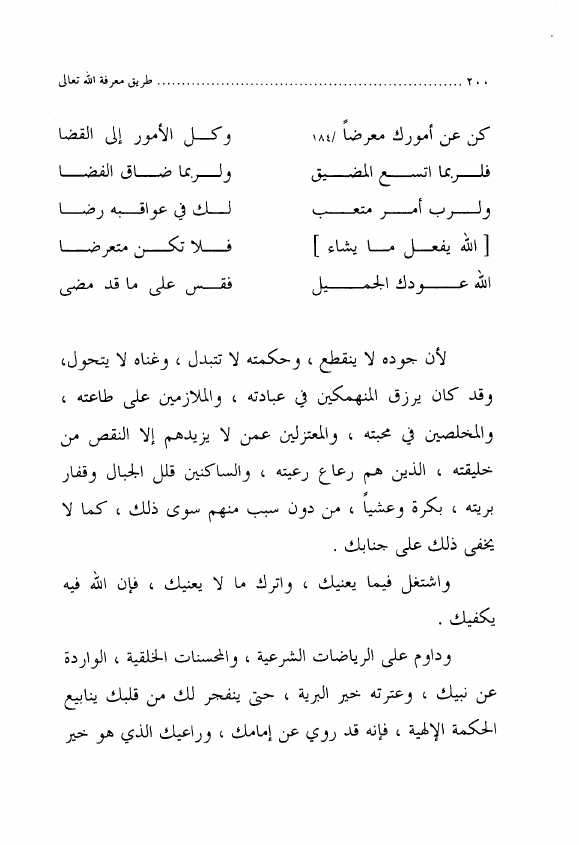 ٢٠٠ ............................................................. طريق معرفة الله تعالى
كن عن أمورك معرضاً /١٨٤ وكـل الأمور إلى القضا
فلـربما اتسـع المضـيق ولـربما ضـاق الفضـا
ولـرب أمـر متعـب لـك في عواقبـه رضـا
[ الله يفعـل مـا يشاء ] فـلا تكـن متعرضـا
الله عـودك الجميـل فقـس على ما قد مضى
لأن جوده لا ينقطع ، وحكمته لا تتبدل ، وغناه لا يتحول،
وقد كان يرزق المنهمكين في عبادته ، والملازمين على طاعته ،
والمخلصين في محبته ، والمعتزلين عمن لا يزيدهم إلا النقص من
خليقته ، الذين هم رعاع رعيته ، والساكنين قلل الجبال وقفار
بريته ، بكرة وعشياً ، من دون سبب منهم سوى ذلك ، كما لا
يخفى ذلك على جنابك .
واشتغل فيما يعنيك ، واترك ما لا يعنيك ، فإن الله فيه
يكفيك .
وداوم على الرياضات الشرعية ، والمحسنات الخلقية ، الواردة
عن نبيك ، وعترته خير البرية ، حتى ينفجر لك من قلبك ينابيع
الحكمة الإلهية ، فإنه قد روي عن إمامك ، وراعيك الذي هو خير